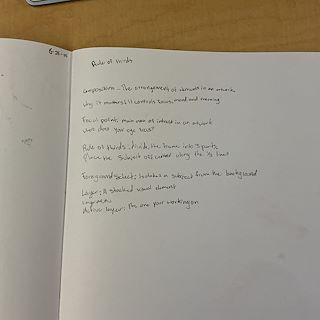 Rule of thirds
Composition - The arrangement of elements in an artwork
Why it matters: it controls focus, mood and meaning
Focal point: main area of intrest in an artwork
where does your eye
Rule of thirds: divide the frame into 3 parts,
Place the subject off center along the
Foreground select: Isolates a subject from the background
Layer: A stacked visual element
Active layer: the one your working on